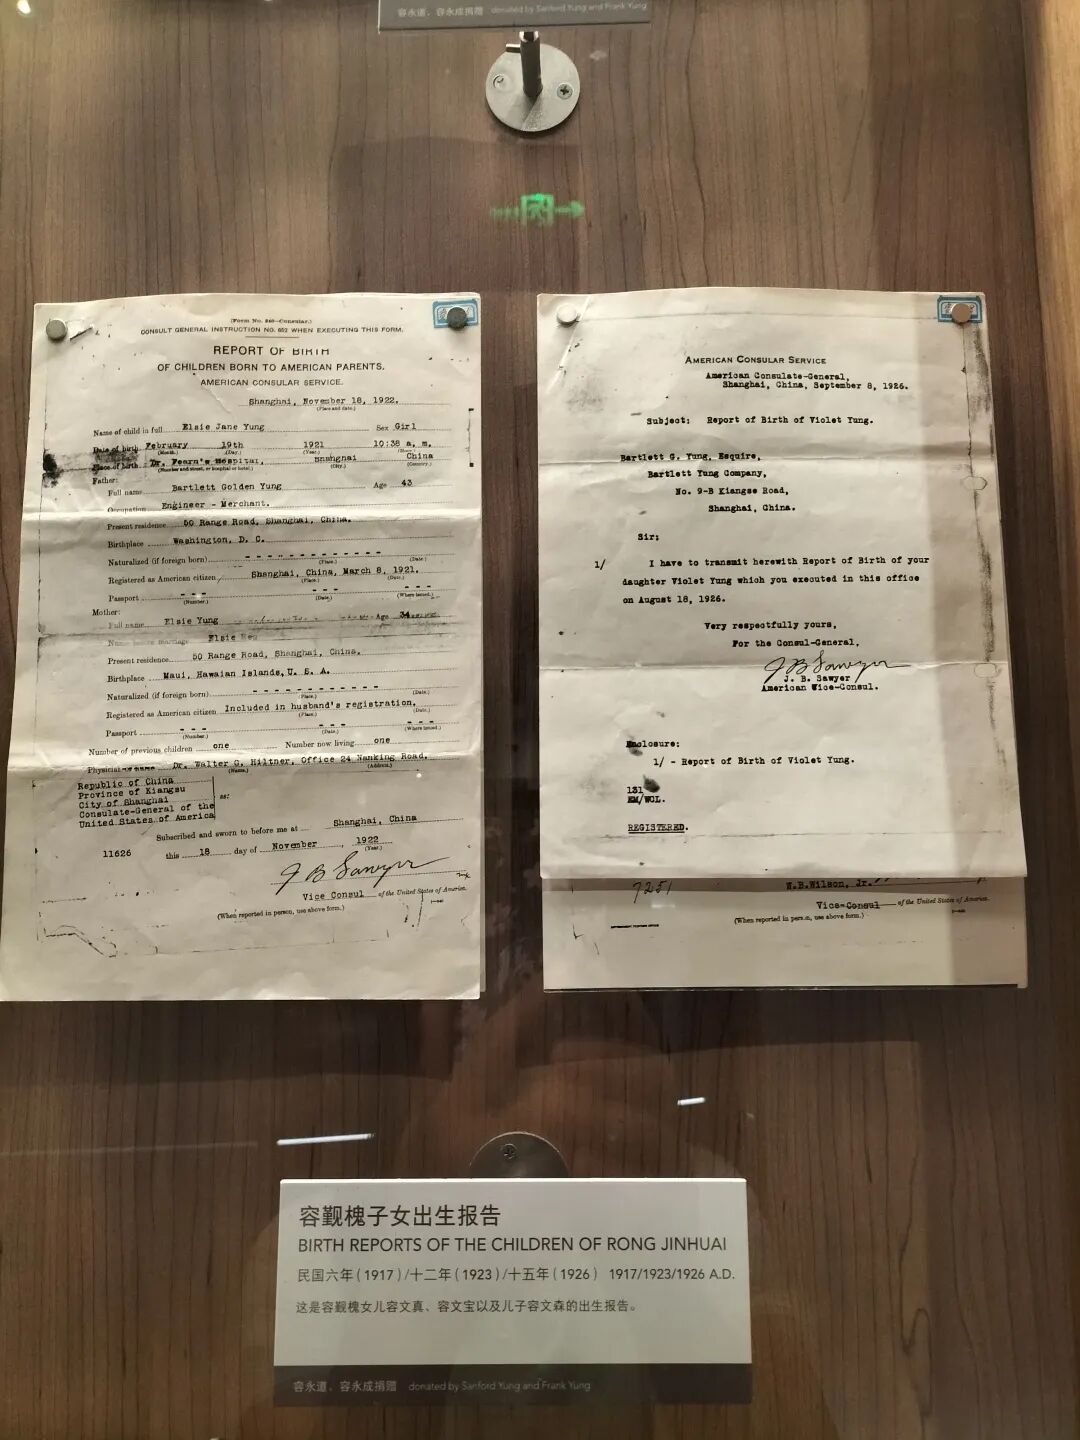 容永道、容永成捐赠 donated by Sanford Yung and Frank Yung
(Form No. 240—Consular.)
CONSULT GENERAL INSTRUCTION NO. 652 WHEN EXECUTING THIS FORM.
REPORT OF BIRTH
OF CHILDREN BORN TO AMERICAN PARENTS.
AMERICAN CONSULAR SERVICE.
Shanghai, November 18, 1922.
(Place and date.)
Name of child in full Elsie Jane Yung Sex Girl
Date of birth February 19th 1921 10:38 a. m.
(Month.) (Day.) (Year.) (Hour.)
Place of birth Dr. Fearn's Hospital, Shanghai China
(Number and street, or hospital or hotel.) (City.) (Country.)
Father:
Full name Bartlett Golden Yung Age 43
Occupation Engineer - Merchant.
Present residence 50 Range Road, Shanghai, China.
Birthplace Washington, D. C.
Naturalized (if foreign born)
(Place.) (Date.)
Registered as American citizen Shanghai, China, March 8, 1921.
(Place.) (Date.)
Passport
(Number.) (Date.) (Where issued.)
Mother:
Full name Elsie Yung Age 34
Name before marriage Elsie
Present residence 50 Range Road, Shanghai, China.
Birthplace Maui, Hawaiian Islands, U. S. A.
Naturalized (if foreign born)
(Place.) (Date.)
Registered as American citizen Included in husband's registration.
(Place.) (Date.)
Passport
(Number.) (Date.) (Where issued.)
Number of previous children one Number now living one
Physician Dr. Walter G. Hiltner, Office 24 Nanking Road,
(Name.) (Address.)
Republic of China
Province of Kiangsu
City of Shanghai ss:
Consulate-General of the
United States of America
Subscribed and sworn to before me at Shanghai, China
11626 this 18 day of November, 1922
(Year.)
J B Sawyer
Vice Consul of the United States of America.
(When reported in person, use above form.)
AMERICAN CONSULAR SERVICE
American Consulate-General,
Shanghai, China, September 8, 1926.
Subject: Report of Birth of Violet Yung.
Bartlett G. Yung, Esquire,
Bartlett Yung Company,
No. 9-B Kiangse Road,
Shanghai, China.
Sir:
1/ I have to transmit herewith Report of Birth of your
daughter Violet Yung which you executed in this office
on August 18, 1926.
Very respectfully yours,
For the Consul-General,
J B Sawyer
J. B. Sawyer
American Vice-Consul.
Enclosure:
1/ - Report of Birth of Violet Yung.
131
EM/WCL.
REGISTERED.
7251 W.B.Wilson, Jr.
Vice-Consul of the United States of America.
(When reported in person, use above form.)
GOVERNMENT PRINTING OFFICE
容觐槐子女出生报告
BIRTH REPORTS OF THE CHILDREN OF RONG JINHUAI
民国六年(1917)/十二年(1923)/十五年(1926) 1917/1923/1926 A.D.
这是容觐槐女儿容文真、容文宝以及儿子容文森的出生报告。
容永道、容永成捐赠 donated by Sanford Yung and Frank Yung